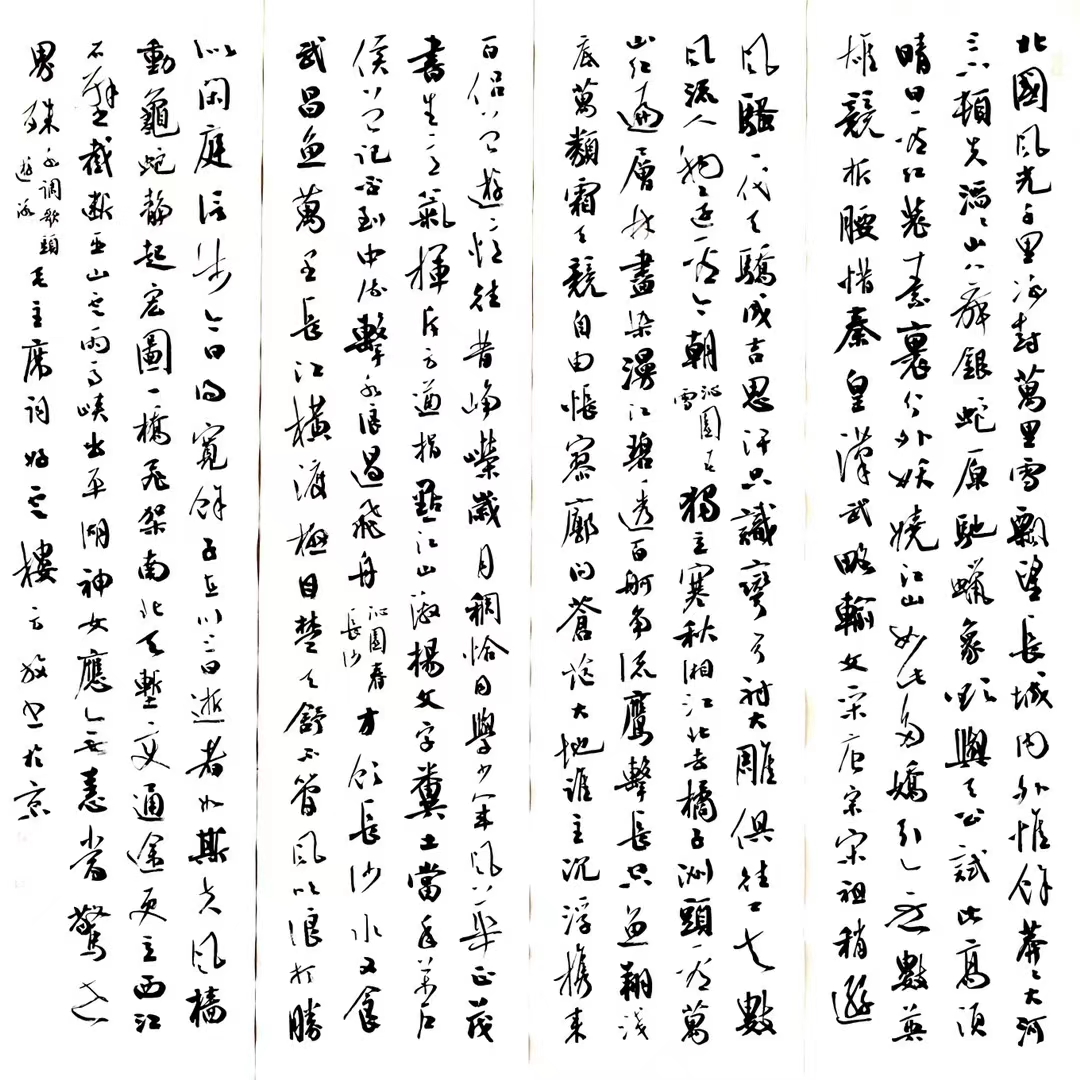 北國風光千里冰封萬里雪飄望長城内外惟餘莽々大河
上下頓失滔々山舞銀蛇原馳蠟象欲與天公試比高須
晴日看紅裝素裹分外妖嬈江山如此多嬌引無數英
雄競折腰惜秦皇漢武略輸文采唐宗宋祖稍遜
風騷一代天驕成吉思汗只識彎弓射大雕俱往矣數
風流人物還看今朝沁園春雪獨立寒秋湘江北去橘子洲頭看萬
山紅遍層林盡染漫江碧透百舸爭流鷹擊長空魚翔淺
底萬類霜天競自由悵寥廓問蒼茫大地誰主沉浮攜來
百侣曾遊憶往昔崢嶸歲月稠恰同學少年風華正茂
書生意氣揮斥方遒指點江山激揚文字糞土當年萬户
侯曾記否到中流擊水浪遏飛舟沁園春長沙才飲長沙水又食
武昌魚萬里長江橫渡極目楚天舒不管風吹浪打勝
似閑庭信步今日得寬餘子在川上曰逝者如斯夫風檣
動龜蛇靜起宏圖一橋飛架南北天塹變通途更立西江
石壁截斷巫山雲雨高峽出平湖神女應無恙當驚世
界殊水調歌頭遊泳毛主席詞好雲樓方放書於京